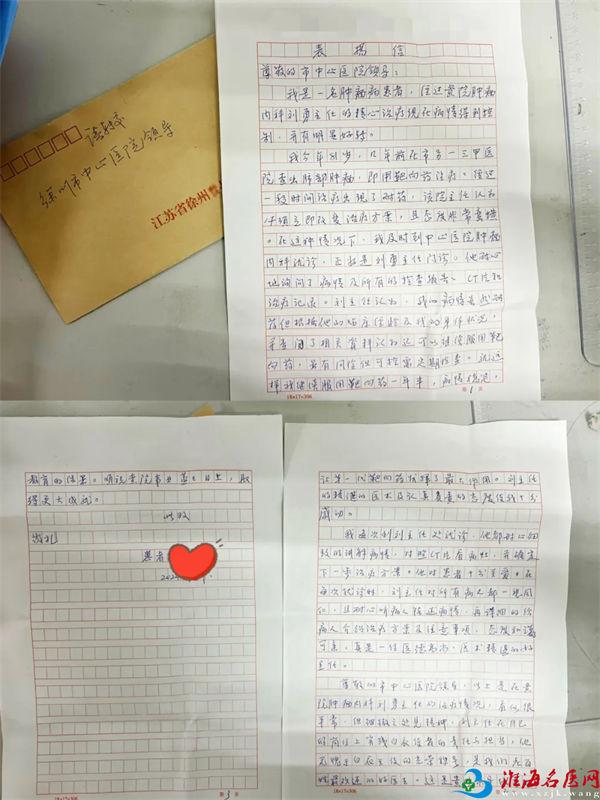 请转交
徐州市中心医院领导
江苏省徐州
表扬信
尊敬的市中心医院领导：
我是一名肿瘤病患者，经过贵院肿瘤
内科刘勇主任的精心治疗现在病情得到控
制，并有明显好转。
我今年81岁，几年前在市另一三甲医
院查出肺部肿瘤，即用靶向药治疗。经过
一段时间治疗出现了耐药，该院主任认为
必须立即改变治疗方案，且态度非常
。在这种情况下，我及时到中心医院肿瘤
内科就诊，正好是刘勇主任门诊。他耐心
地询问了病情及所有的检查报告、CT片和
治疗记录。刘主任认为，我的病情虽然
药但根据他的临床经验及我的身体状况，
并查阅了相关资料认为还可以继续服用靶
向药，虽有风险但可控需定期检查。就这
样我继续服用靶向药一年半，病情稳定，
18×17=306
第1页
让第一代靶向药发挥了最大作用。刘主任
的精湛的医术及认真负责的态度使我十分
感动。
我每次到刘主任处就诊，他都耐心细
致的讲解病情，对照CT片看病灶，并确定
下一步治疗方案。他对患者十分关爱。在
每次就诊时，刘主任对所有病人都一视同
仁，且耐心听病人陈述病情，再详细的给
病人介绍治疗方案及注意事项，态度和蔼
可亲，真是一位医德高尚、医术精湛的好
主任。
尊敬的市中心医院领导，以上是在贵
院肿瘤内科刘勇主任的治疗情况，看似很
平常，但细微之处见精神，刘主任在自己
的岗位上肯践白衣使者的责任与担当，他
无愧于白衣天使的光荣称号，是我们
18×17=306
教育的结果。明祝贵院事业蒸蒸日上，取
得更大成就。
此致
敬礼
患者
202
18×17=306
第3页
淮海名医网
www.xzjk.wang